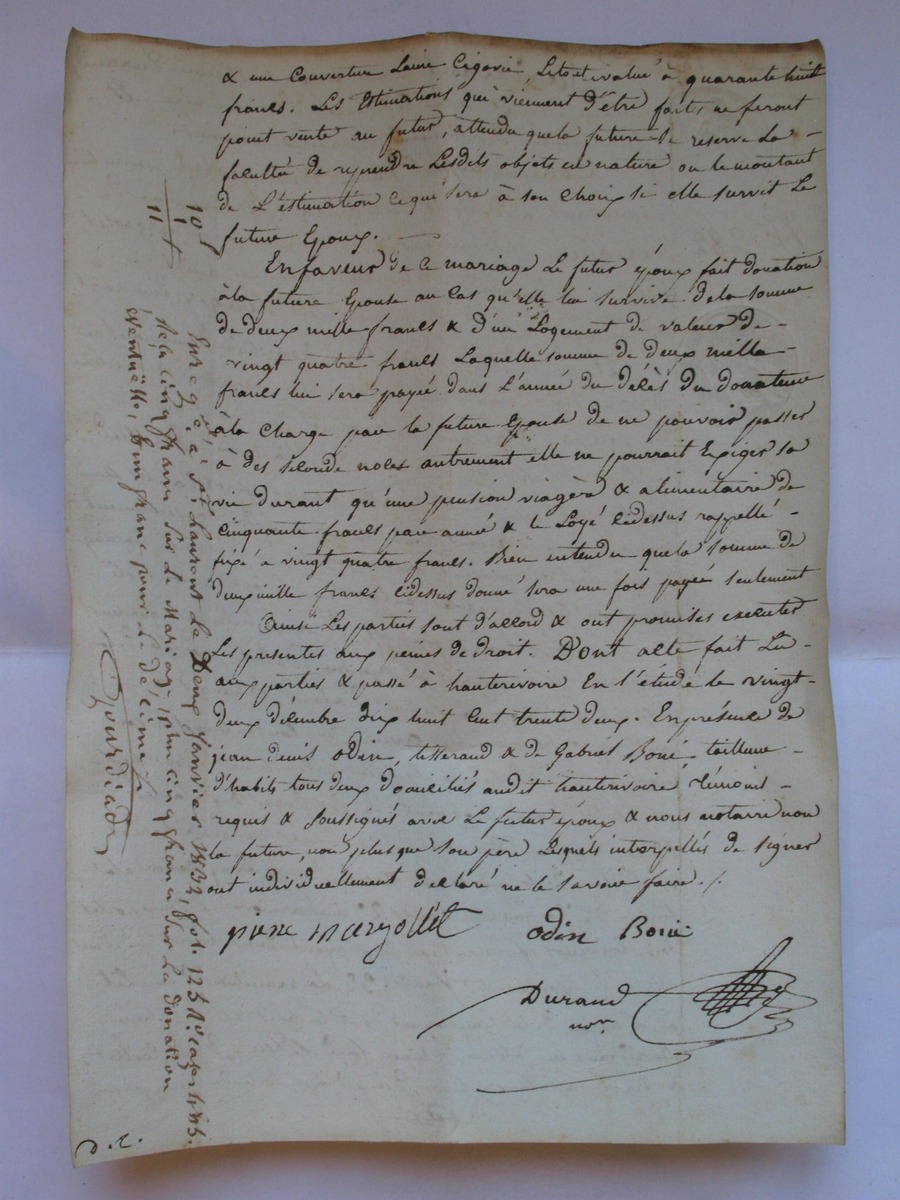 & une Couverture Laine Cigovie, Letout évalué à quarante huit
francs. Les Estimations qui viennent d'être faites ne feront
point vente au futur, attendu que la future se reserve La
faculté de reprendre Lesdits objets en nature ou le montant
de L'éstimation ce qui sera à son choix si elle survit Le
future Epoux.
En faveur de ce mariage Le futur époux fait donation
à la future Epouse au Cas qu'elle lui survive de la somme
de deux mille francs & d'un Logement de valeur de
vingt quatre francs Laquelle somme de deux mille
francs lui sera payée dans L'année du décès du donateur
à la Charge par la future Epouse de ne pouvoir passer
à des seconde noces autrement elle ne pourrait Exiger sa
vie durant qu'une pension viagère & alimentaire de
Cinquante francs par année & le Loyé cidessus rappellé
fixé à vingt quatre francs. Bien entendu que la somme de
deux mille francs cidessus donné sera une fois payée seulement
Ainsi Les parties sont d'accord & ont promises executer
Les presentes aux peines de droit. Dont acte fait Lu
aux parties & passé à hauterivoire En l'étude le vingt
deux décembre dix huit cent trente deux. En présence de
jean denis Odin, tisserand & de Gabriel Boué tailleur
d'habits tous deux domiciliés audit hauterivoire témoins
requis & Soussignés avec Le futur époux & nous notaire non
la future, non plus que son père Lesquels interpellés de signer
ont individuellement déclaré ne le savoir faire ./.
pierre margollet odin Boué
Durand
nore
10f
1
11 f
Enreg. é à St Laurent Le Deux Janvier 1832, fol. 125
Reçu cinq francs sur Le Mariage, cinq francs sur La donation
éventuelle, & un franc pour Le décime f.
D. E.